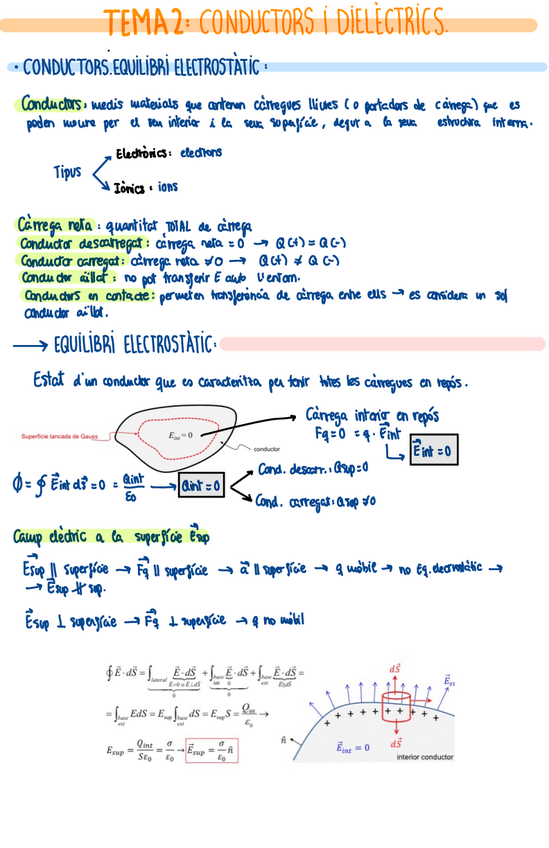 TEMA 2: CONDUCTORS i DIELÈCTRICS.
· CONDUCTORS. EQUILIBRI ELECTROSTÀTIC:
Conductors: medis materials que contenen càrregues lliures (o portadors de càrrega) que es
poden moure per el seu interior i la seua superfície, degut a la seua estructura interna.
Electrònics: electrons
Tipus
Iònics: ions
Càrrega neta: quantitat TOTAL de càrrega
Conductor descarregat: càrrega neta = 0 → Q(+) = Q(-)
Conductor carregat: càrrega neta ≠ 0 → Q(+) ≠ Q(-)
Conductor aïllat: no pot transferir E amb l'entorn.
Conductors en contacte: permeten transferència de càrrega entre ells → es considera un sol
conductor aïllat.
→ EQUILIBRI ELECTROSTÀTIC:
Estat d'un conductor que es caracteritza per tenir totes les càrregues en repòs.
Càrrega interior en repòs
Fq = 0 = q · E⃗int
E⃗int = 0
Superfície tancada de Gauss
E_int = 0
conductor
Φ = ∮ E⃗int dS⃗ = 0 = Qint/ε0 → Qint = 0
Cond. descarr.: Qsup = 0
Cond. carregat: Qsup ≠ 0
Camp elèctric a la superfície E⃗sup
E⃗sup ∥ superfície → F⃗q ∥ superfície → a⃗ ∥ superfície → q mòbil → no Eq. electrostàtic →
→ E⃗sup ∦ sup.
E⃗sup ⊥ superfície → F⃗q ⊥ superfície → q no mòbil
∮ E⃗ · dS⃗ = ∫lateral E⃗ · dS⃗ + ∫base int E⃗ · dS⃗ + ∫base ext E⃗ · dS⃗ =
E⃗=0 o E⃗⊥dS⃗ 0 0 E⃗∥dS⃗
= ∫base ext EdS = E_sup ∫base ext dS = E_sup S = Q_int/ε0 →
E_sup = Q_int/Sε0 = σ/ε0 → E⃗_sup = σ/ε0 n̂
dS⃗
n̂
E⃗_int = 0
dS⃗
interior conductor